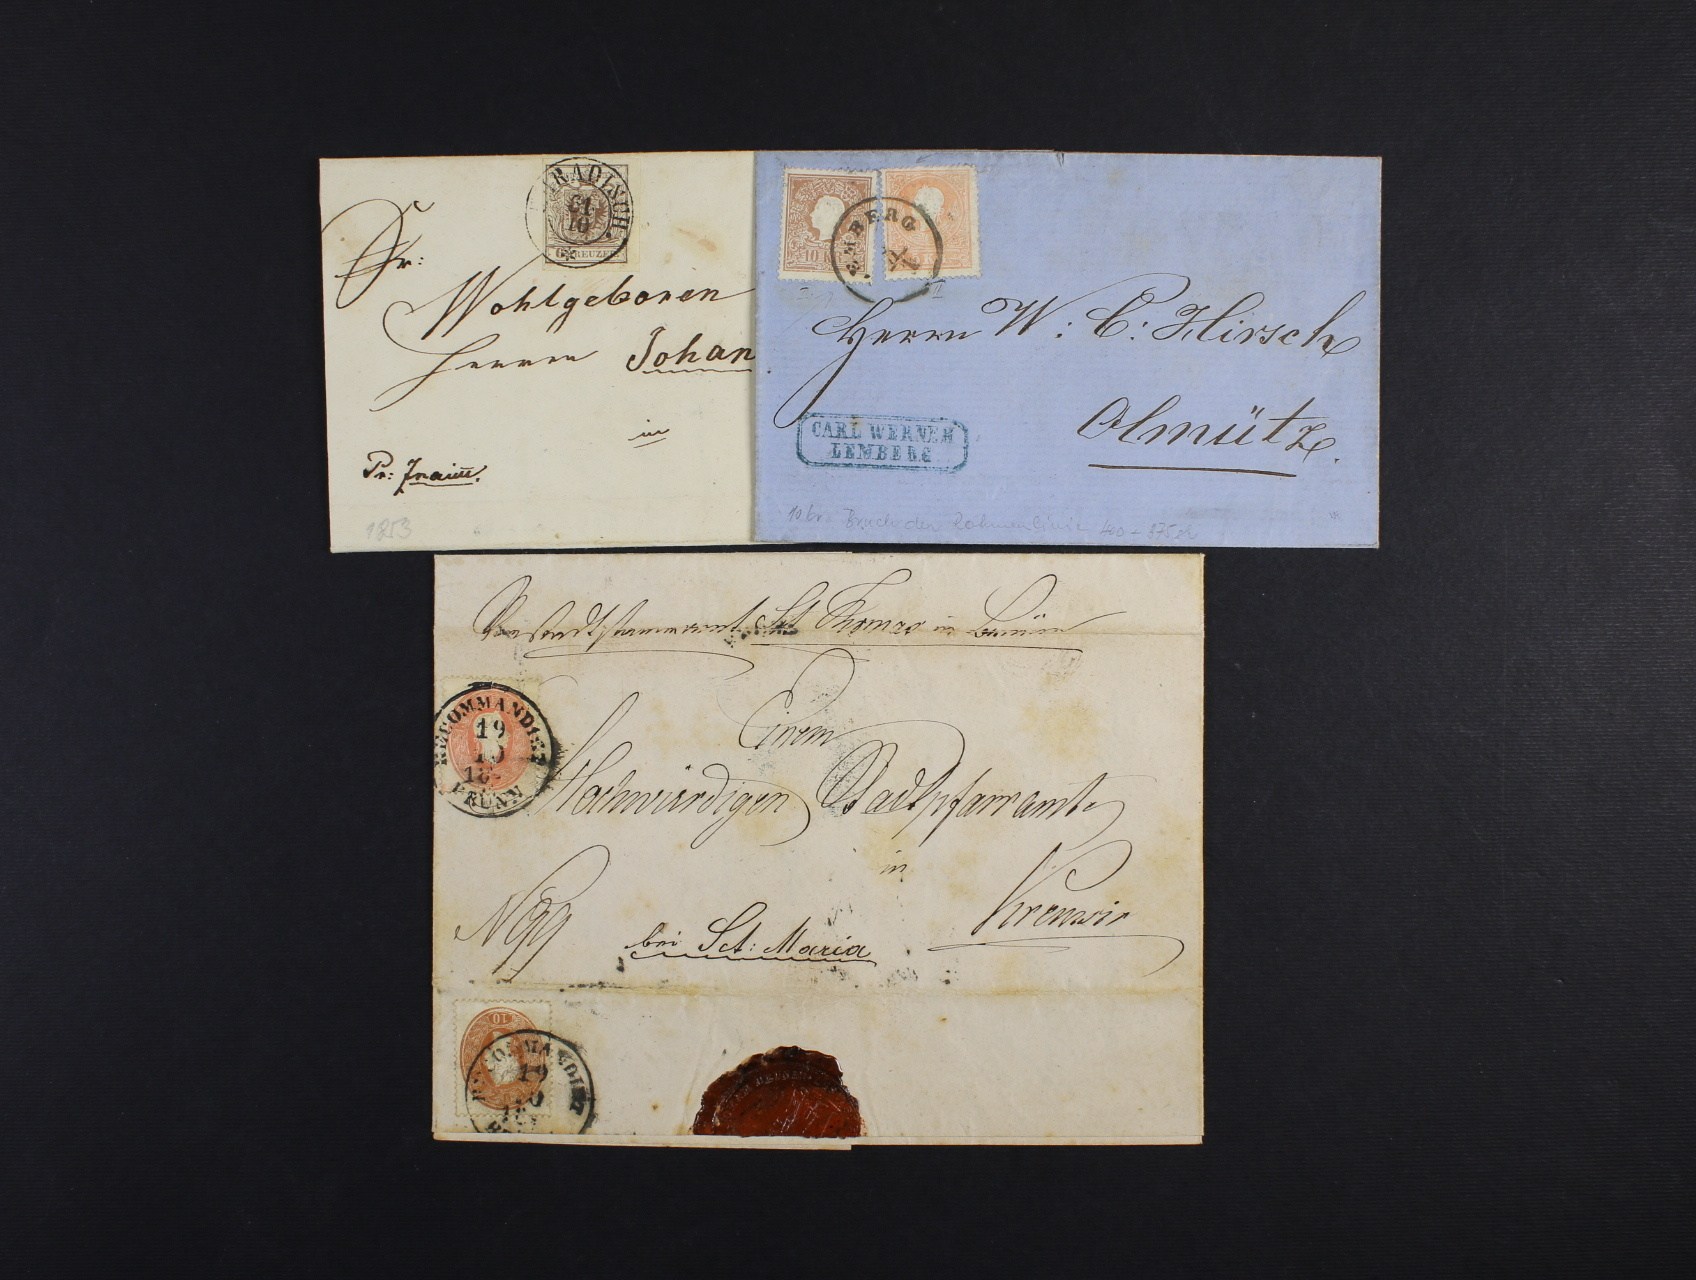 HRADISCH.
61
10
6 KREUZER
Sr:
Wohlgeboren
Herrn Johan
in
Pr: Znaim.
1853
10 K
EMBERG
II
Herrn W: C: Hirsch
Olmütz.
CARL WERNER
LEMBERG
10 kr Bruch der Rahmenlinie 400
Vorstadtpfarramt Sct Thomas in Brünn
RECOMMANDIRT
19
10
18
BRÜNN
Einem
Hochwürdigen Stadtpfarramte
in
bei Sct: Maria
Kremsir
10
RECOMMANDIRT
19
10
18